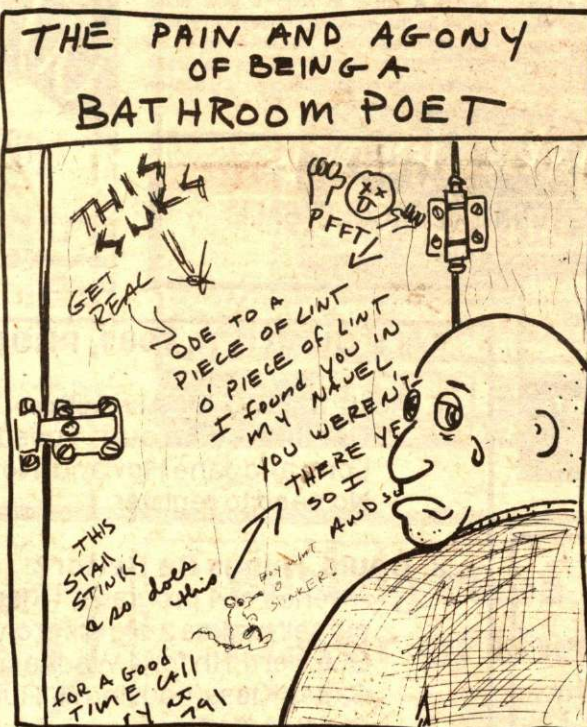 THE PAIN AND AGONY
OF BEING A
BATHROOM POET
THIS
SUKS
PFFT
GET
REAL
ODE TO A
PIECE OF LINT
O' PIECE OF LINT
I found you IN
MY NAVEL
YOU WEREN'T
THERE YE
SO I
AND SO
THIS
STALL
STINKS
& so does
this
BOY WHAT
A
STINKER!
FOR A GOOD
TIME CALL
RY at
791